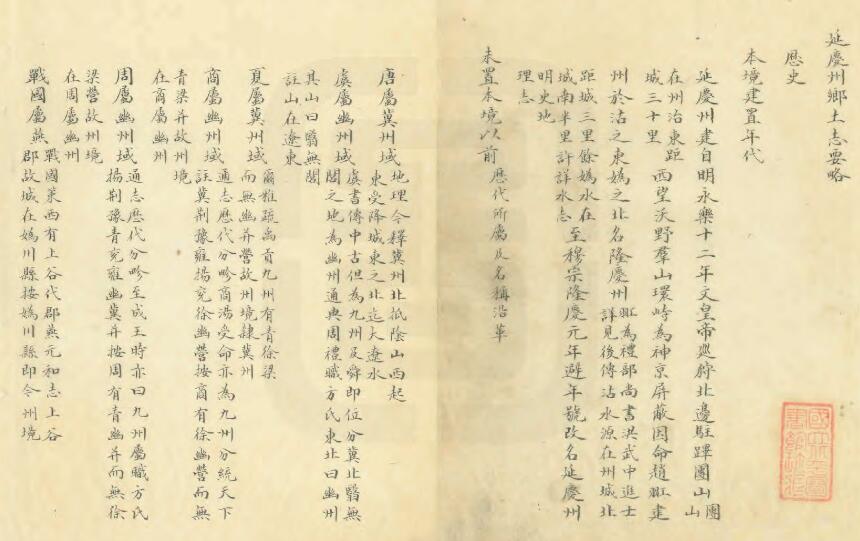 延慶州鄉土志要略
歷史
本境建置年代
延慶州建自明永樂十二年文皇帝廵狩北邊駐蹕團山團山
在州治東距
城三十里西望沃野羣山環峙為神京屏蔽因命趙羾建
州於沽之東媯之北名隆慶州羾為禮部尚書洪武中進士
詳見後傳沽水源在州城北
距城三里餘媯水在
城南半里許詳水志至穆宗隆慶元年避年號改名延慶州
明史地
理志
未置本境以前歷代所屬及名稱沿革
唐屬冀州域地理今釋冀州北抵陰山西起
東受降城東之北迄大遼水
虞屬幽州域虞書傳中古但為九州及舜即位分冀北醫無
閭之地為幽州通典周禮職方氏東北曰幽州
其山曰醫無閭
註山在遼東
夏屬冀州域爾雅疏禹貢九州有青徐梁
而無幽并營故州境隸冀州
商屬幽州域通志歷代分畛商湯受命亦為九州分統天下
註冀荆豫雍揚兗徐幽營按商有徐幽營而無
青梁并故州境
在商屬幽州
周屬幽州域通志歷代分畛至成王時亦曰九州屬職方氏
揚荆豫青兗雍幽冀并按周有青幽并而無徐
梁營故州境
在周屬幽州
戰國屬燕戰國策西有上谷代郡燕元和志上谷
郡故城在媯川縣按媯川縣即今州境